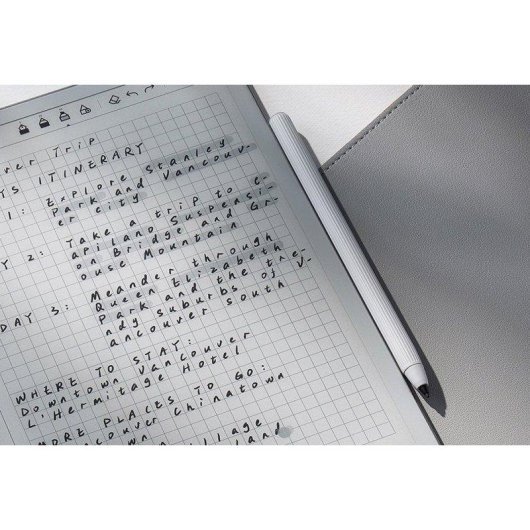 ver Trip
YS ITINERARY
1: Explore Stanley
Park and Vancouv-
er city
Y 2: Take a trip to C-
apilano Suspensi-
on Bridge and Gr-
ouse Mountain
DAY 3: Meander through
Queen Elizabeth
Park and the tre-
ndy suburbs of V-
ancouver south
WHERE TO STAY:
Downtown Vancouver
L'Hermitage Hotel
MORE PLACES TO GO:
couver Chinatown
llage
land